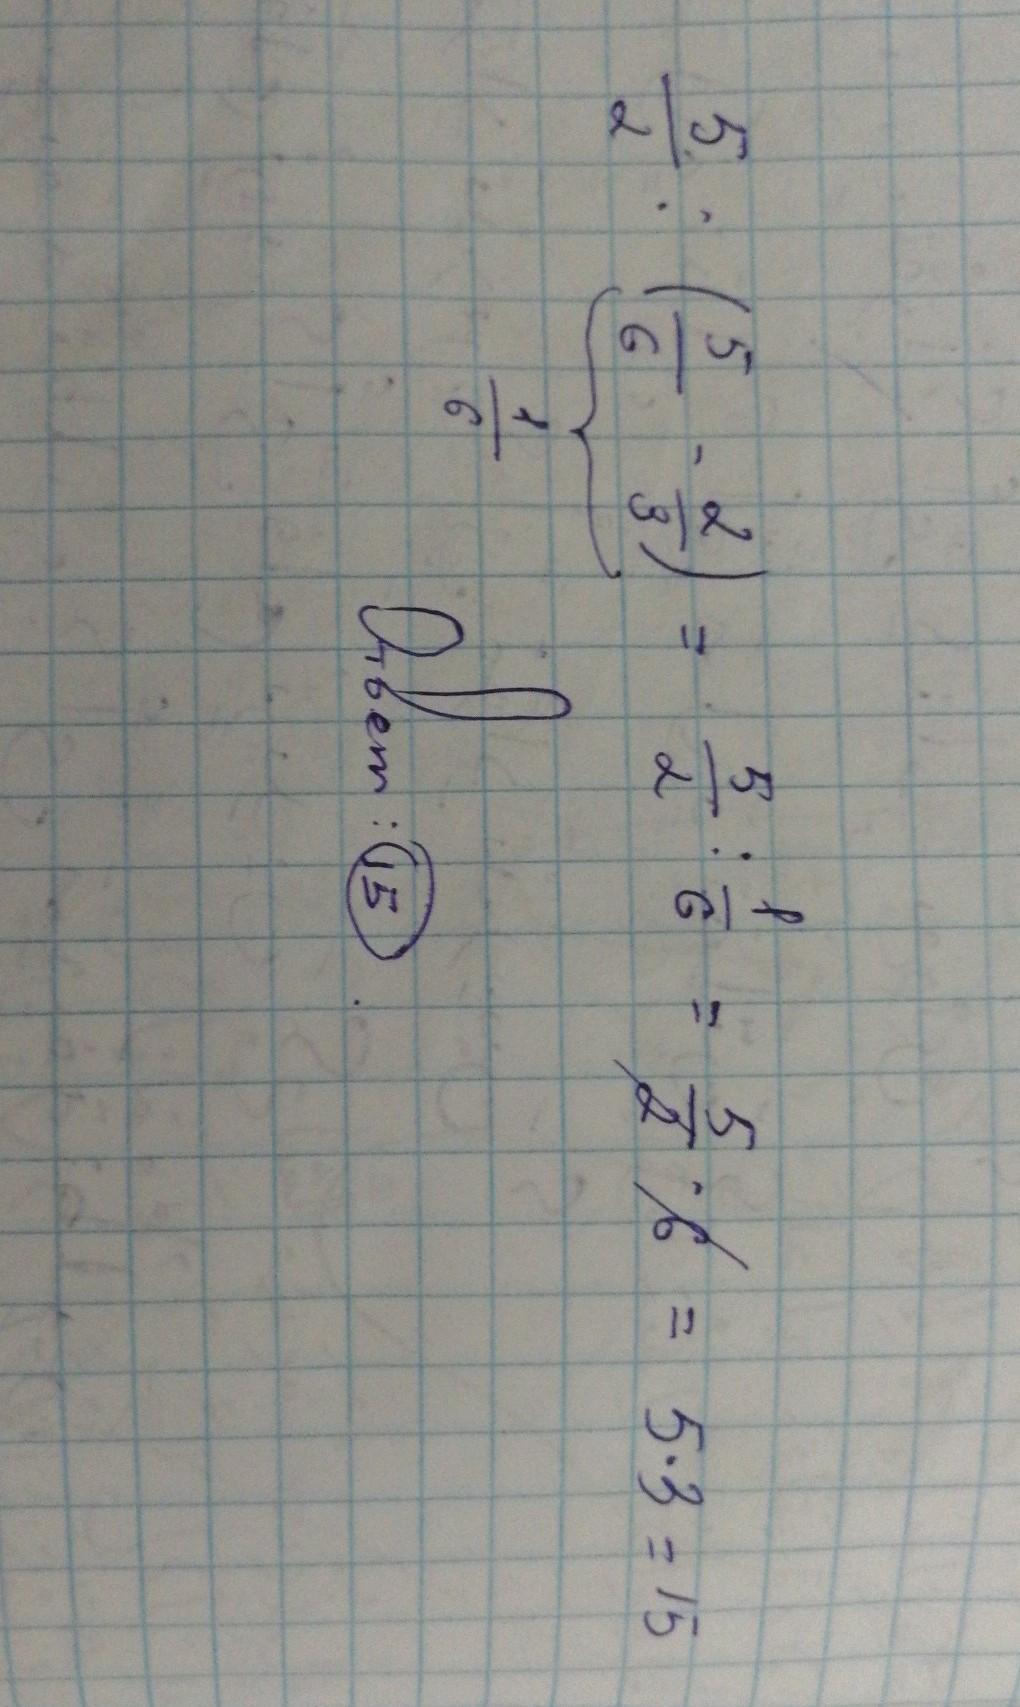 5/2 : (5/6 - 2/3) = 5/2 : 1/6 = 5/2 · 6 = 5·3 = 15
1/6
Ответ: 15.